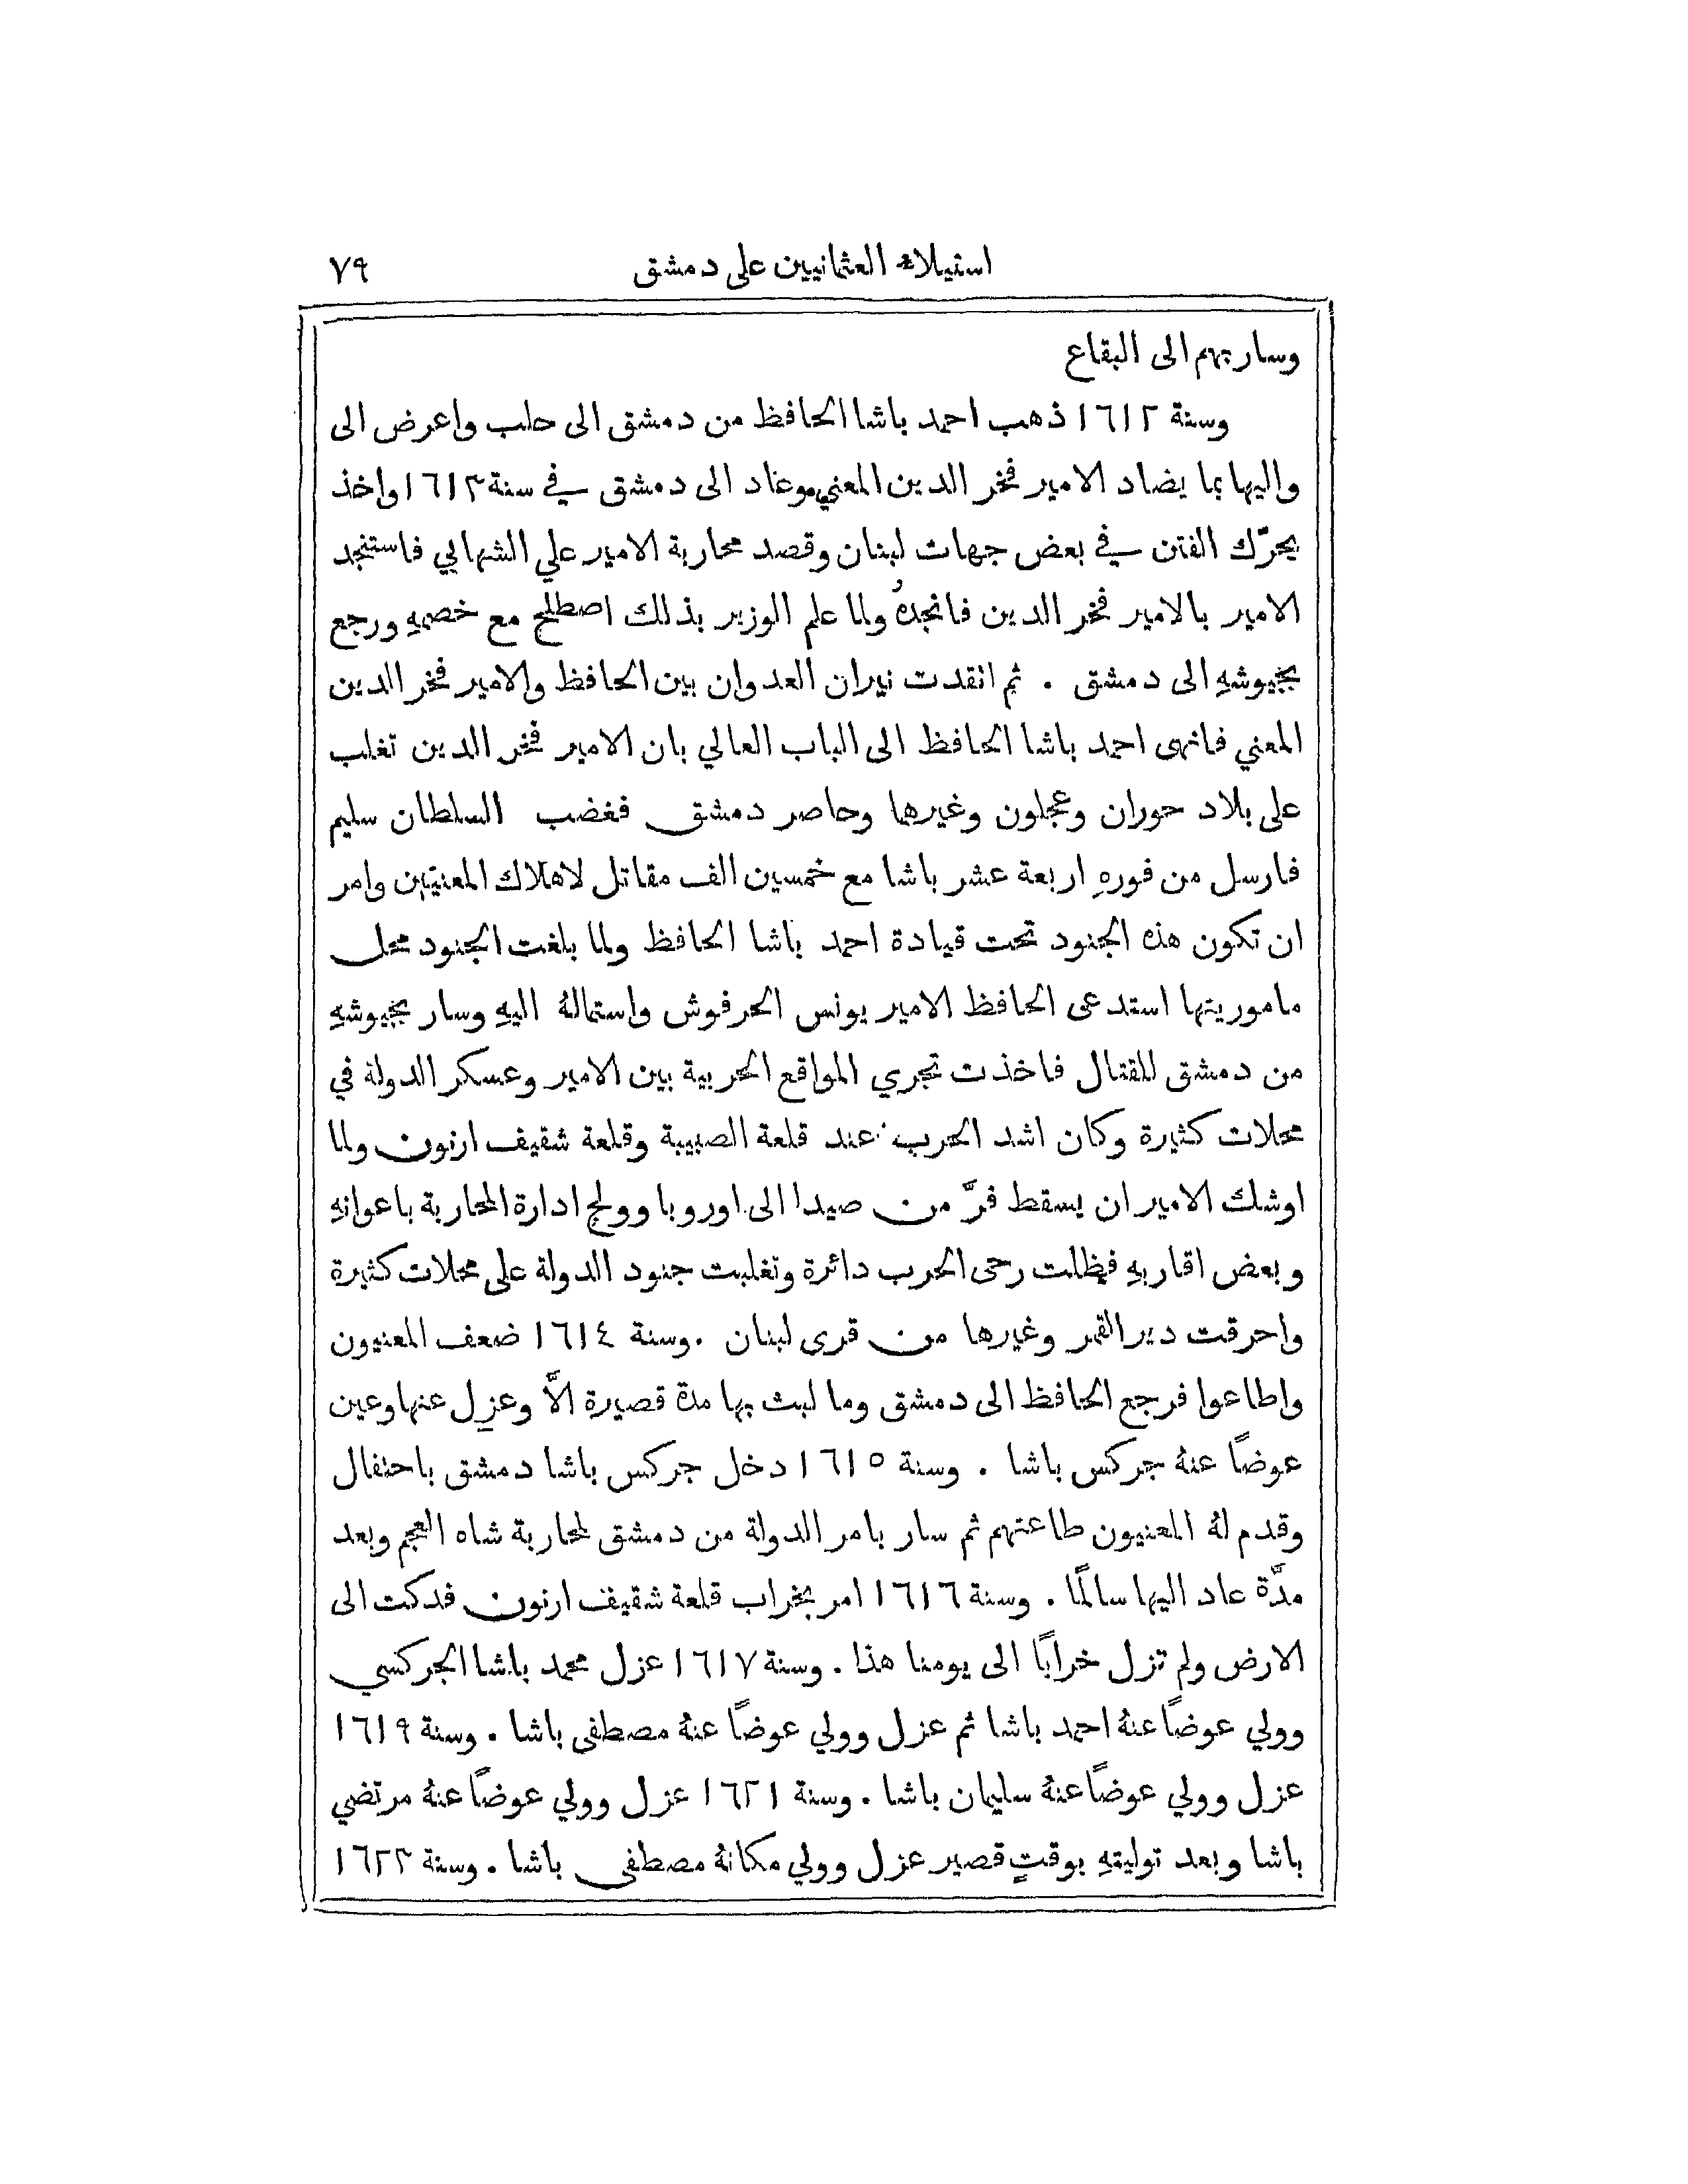 استيلاء العثمانيين على دمشق ٧٩
وسار بهم الى البقاع
وسنة ١٦١٢ ذهب احمد باشا الحافظ من دمشق الى حلب واعرض الى
واليها بما يضاد الامير فخر الدين المعني وعاد الى دمشق في سنة ١٦١٣ واخذ
يحرّك الفتن في بعض جهات لبنان وقصد محاربة الامير علي الشهابي فاستنجد
الامير بالامير فخر الدين فانجدهُ ولما علم الوزير بذلك اصطلح مع خصمهِ ورجع
بجيوشهِ الى دمشق . ثم اتقدت نيران العدوان بين الحافظ والامير فخر الدين
المعني فانهى احمد باشا الحافظ الى الباب العالي بان الامير فخر الدين تغلب
على بلاد حوران وعجلون وغيرها وحاصر دمشق فغضب السلطان سليم
فارسل من فورهِ اربعة عشر باشا مع خمسين الف مقاتل لاهلاك المعنيّين وامر
ان تكون هذه الجنود تحت قيادة احمد باشا الحافظ ولما بلغت الجنود محل
ماموريتها استدعى الحافظ الامير يونس الحرفوش واستمالهُ اليهِ وسار بجيوشهِ
من دمشق للقتال فاخذت تجري المواقع الحربية بين الامير وعسكر الدولة في
محلات كثيرة وكان اشد الحرب عند قلعة الصبيبة وقلعة شقيف ارنون ولما
اوشك الامير ان يسقط فرَّ من صيدا الى اوروبا وولج ادارة المحاربة باعوانهِ
وبعض اقاربهِ فظلت رحى الحرب دائرة وتغلبت جنود الدولة على محلات كثيرة
واحرقت دير القمر وغيرها من قرى لبنان . وسنة ١٦١٤ ضعف المعنيون
واطاعوا فرجع الحافظ الى دمشق وما لبث بها مدة قصيرة الاَّ وعزل عنها وعين
عوضًا عنهُ جركس باشا . وسنة ١٦١٥ دخل جركس باشا دمشق باحتفال
وقدم لهُ المعنيون طاعتهم ثم سار بامر الدولة من دمشق لمحاربة شاه العجم وبعد
مدَّة عاد اليها سالمًا . وسنة ١٦١٦ امر بخراب قلعة شقيف ارنون فدكت الى
الارض ولم تزل خرابًا الى يومنا هذا . وسنة ١٦١٧ عزل محمد باشا الجركسي
وولي عوضًا عنهُ احمد باشا ثم عزل وولي عوضًا عنهُ مصطفى باشا . وسنة ١٦١٩
عزل وولي عوضًا عنهُ سليمان باشا . وسنة ١٦٢١ عزل وولي عوضًا عنهُ مرتضي
باشا وبعد توليتهِ بوقتٍ قصير عزل وولي مكانهُ مصطفى باشا . وسنة ١٦٢٣